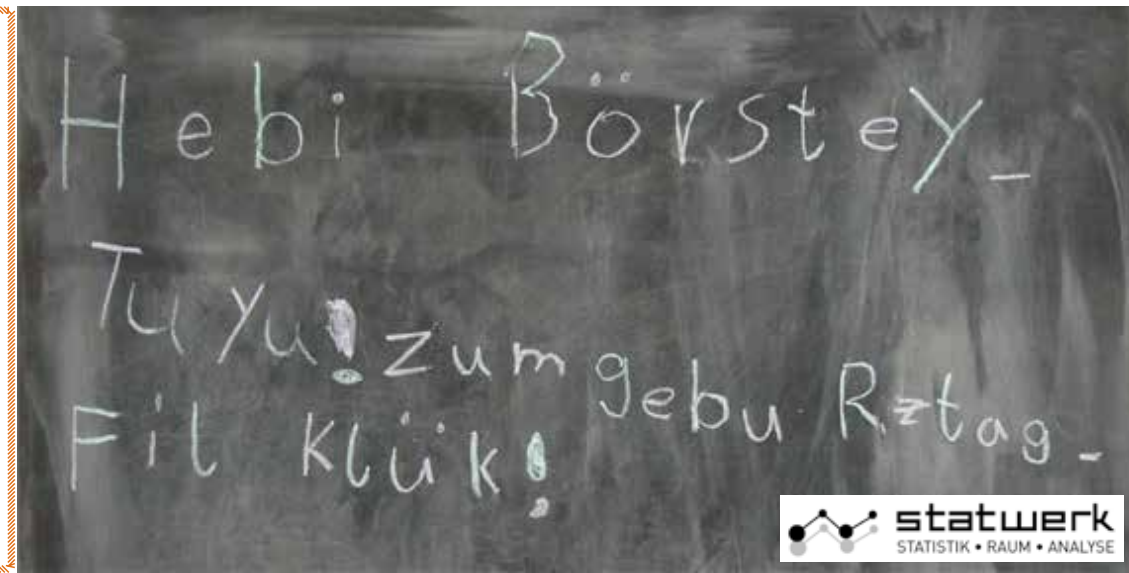 Hebi Börstey_
Tu yu! zum gebu Rztag_
Fil klük!
statwerk
STATISTIK • RAUM • ANALYSE